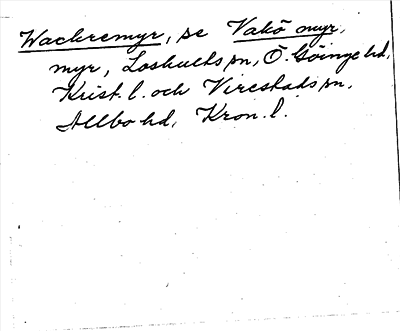 Wackremyr, se Vakö myr,
myr, Loshults sn, Ö. Göinge hd,
Krist. l. och Virestads sn,
Allbo hd, Kron. l.